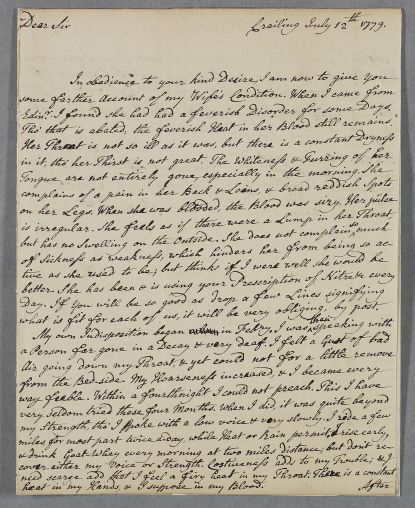 Dear Sir
Crailing July 12th 1779.
In obedience to your kind Desire, I am now to give you
some farther Account of my Wife's Condition. When I came from
Edinr. I found she had had a feverish Disorder for some Days.
Tho' that is abated, the feverish Heat in her Blood still remains.
Her Throat is not so ill as it was, but there is a constant Dryness
in it, tho' her Thirst is not great. The Whiteness & Furring of her
Tongue are not entirely gone, especially in the morning. She
complains of a pain in her Back & Loins, & broad reddish Spots
on her Legs. When she was blooded, the Blood was sizy. Her pulse
is irregular. She feels as if there were a Lump in her Throat
but has no Swelling on the Outside. She does not complain much
of Sickness as weakness, which hinders her from being so ac-
tive as she used to be, but thinks if I were well she would be
better. She has been & is using your Prescription of Nitre every
Day. If you will be so good as drop a few Lines signifying
what is fit for each of us, it will be very obliging, by post.
My own Indisposition began in Febry. I was then speaking with
a Person far gone in a Decay & very deaf. I felt a Gust of bad
Air going down my Throat & yet could not for a little remove
from the Bed-side. My Hoarseness increased, & I became every
way feeble. Within a fourthnight I could not preach. This I have
very seldom tried these four Months. When I did, it was quite beyond
my Strength, tho' I spoke with a low voice & very slowly. I rode a few
miles for most part twice a day, while Heat or Rain permit. I rise early,
& drink Goat-Whey every morning at two miles distance, but don't re-
cover either my Voice or Strength. Costiveness adds to my Trouble; & I
need scarce add that I feel a firy heat in my Throat. There is a constant
heat in my Hands & I suppose in my Blood.
After